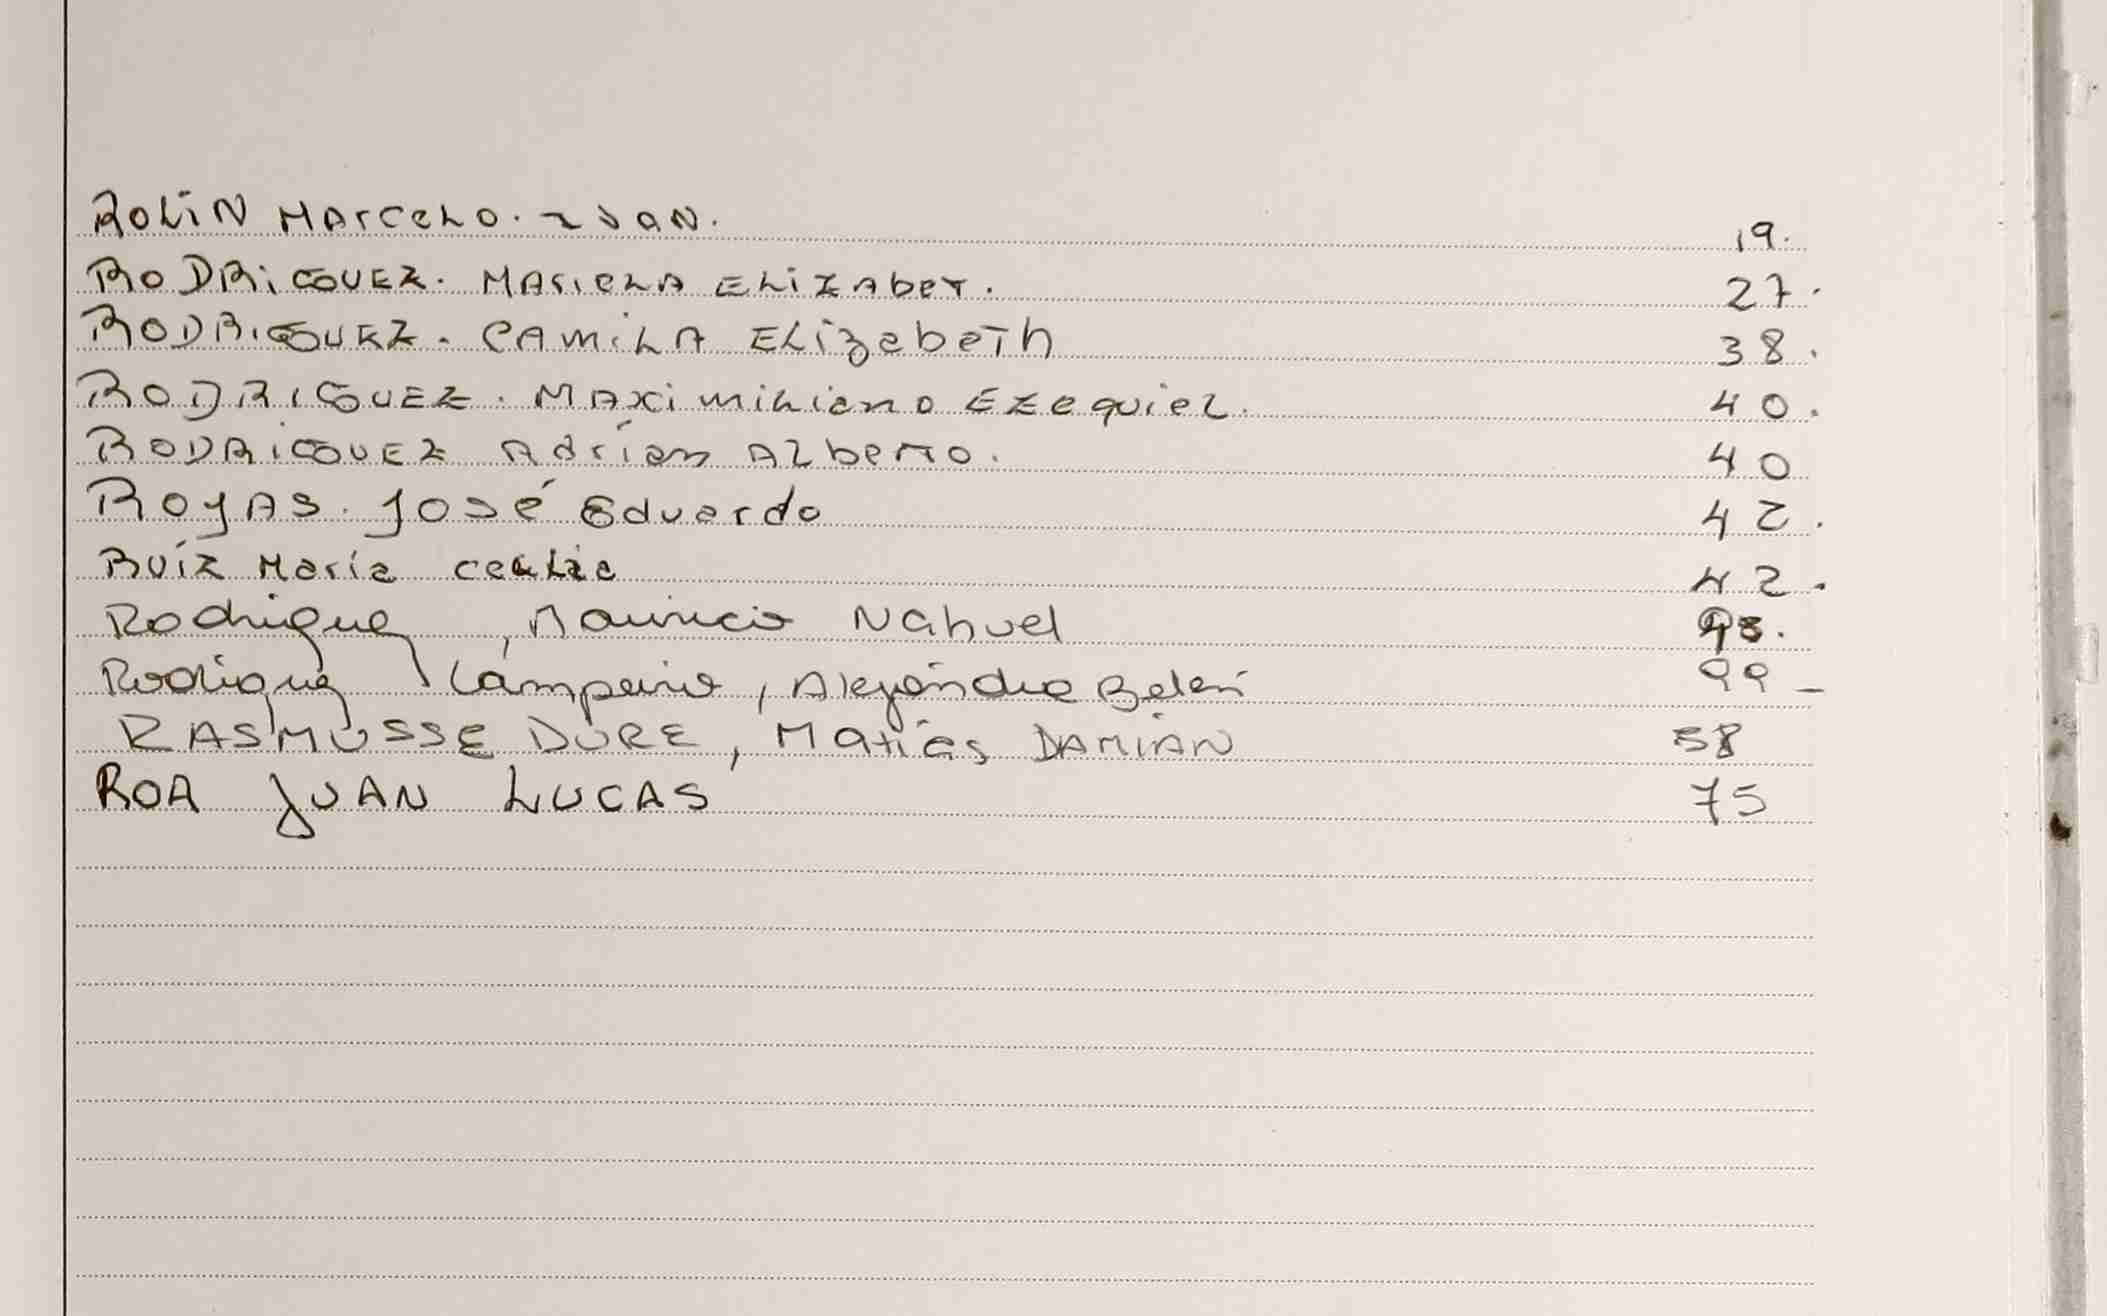 ROLiN MArceLO. IVAN. 19.
RODRiGUEZ. MARIELA ELiZAbeT. 27.
RODRIGUEZ. CAMiLA ELizabeTh 38.
RODRIGUEZ. MAXimiLiano Ezequiel. 40.
RODRiGUEZ Adrían ALberTO. 40
ROJAS. José Eduardo 42.
RUíZ María ceciLia 42.
Rodriguez, Mauricio Nahuel
Rodriguez Campeiro, Alejandra Belén
RASMUSSE DURE, Matías DAMIÁN 58
ROA JUAN LUCAS 75